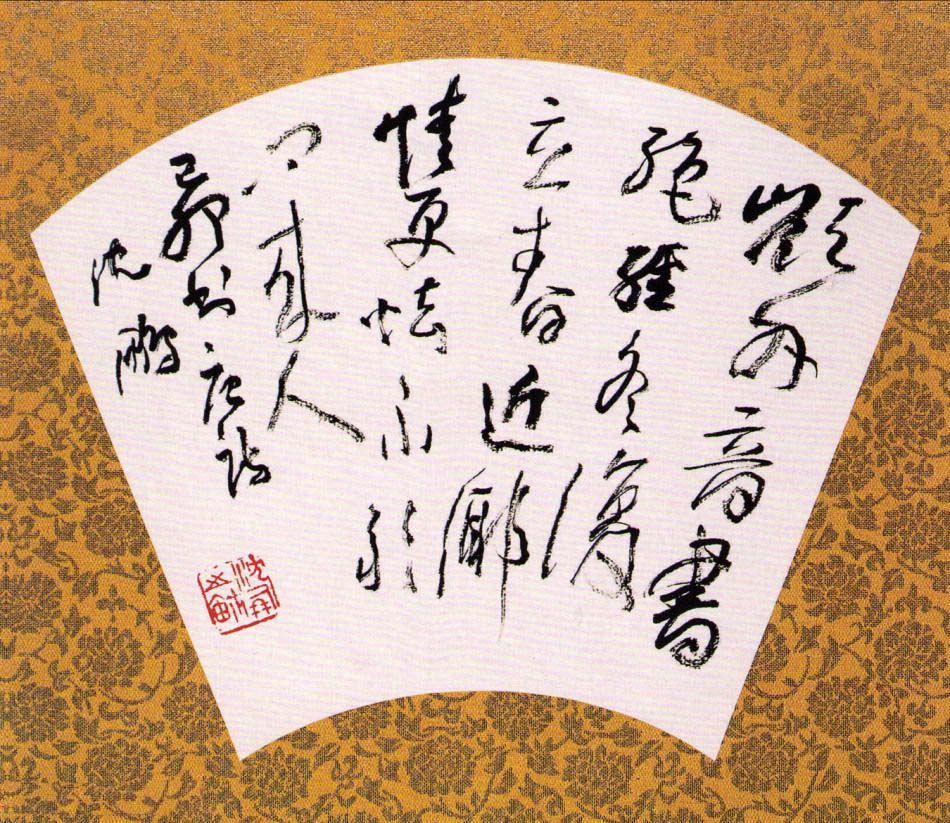 嶺外音書
絕經冬復
立春近鄉
情更怯不敢
問來人
己卯書唐詩
沈鵬